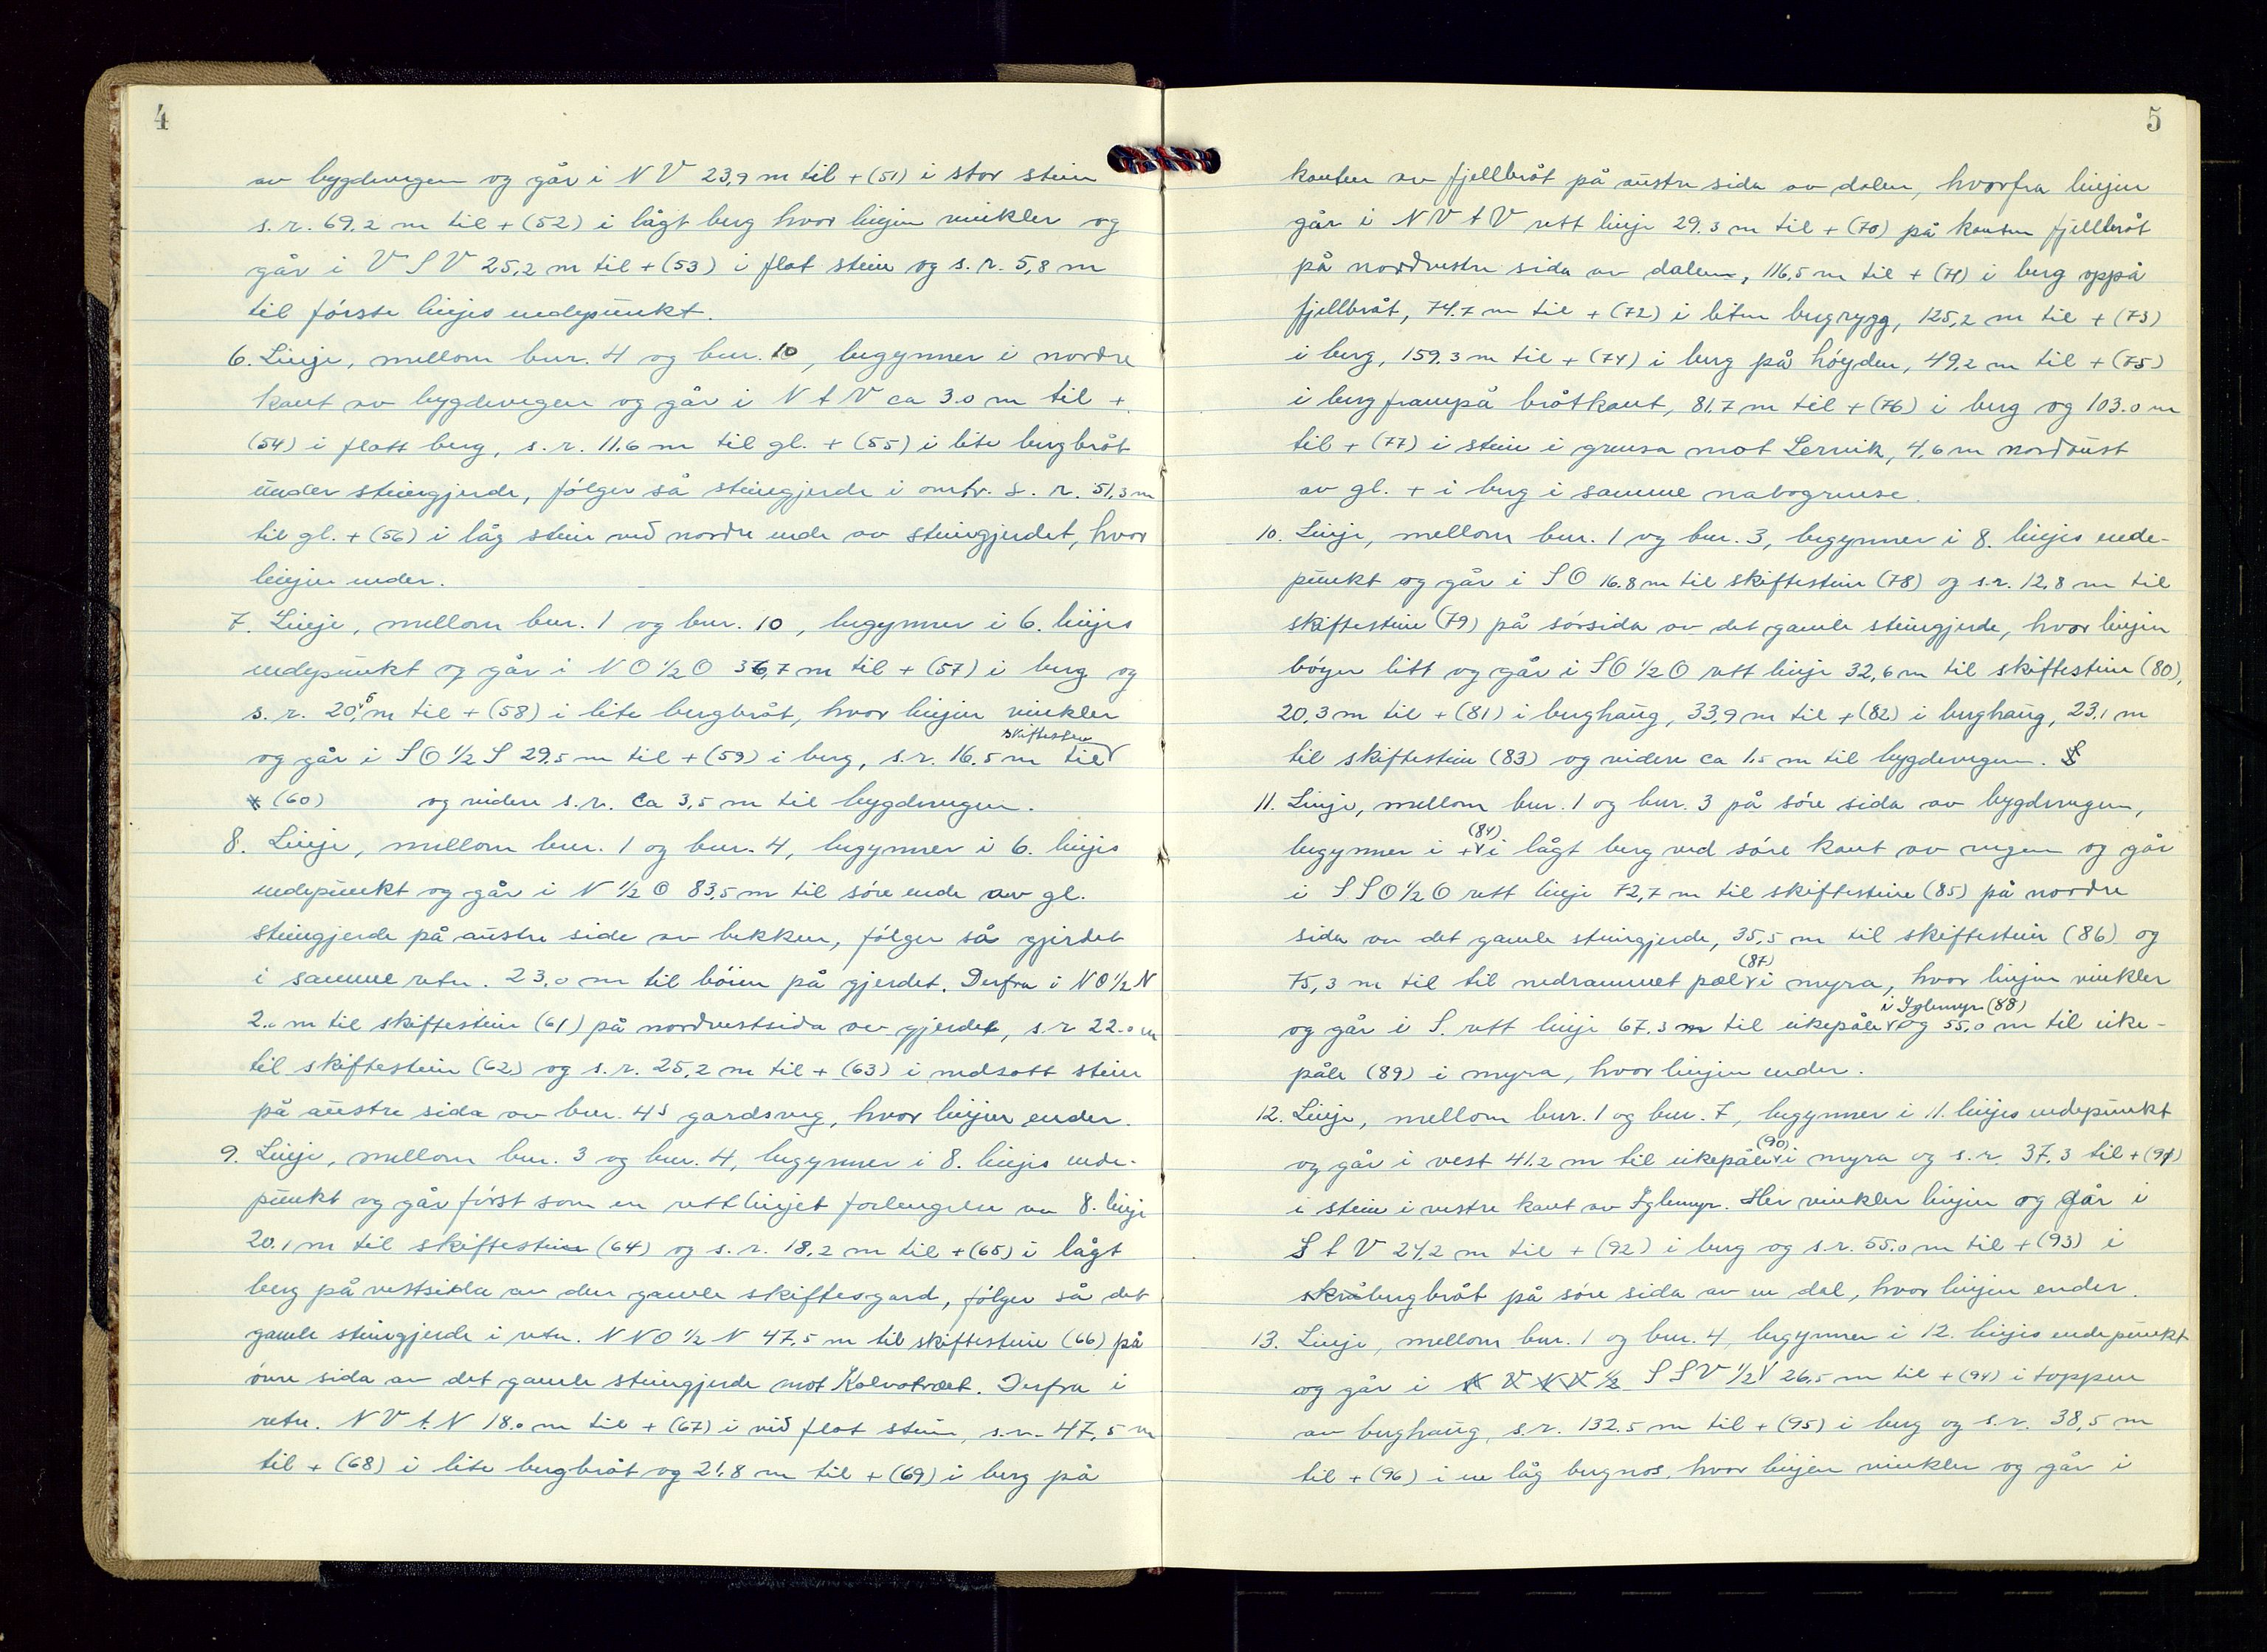 4
av bygdevegen og går i N V 23,9 m til + (51) i stor stein
s. r. 69,2 m til + (52) i lågt berg hvor linjen vinkler og
går i V S V 25,2 m til + (53) i flat stein og s. r. 5,8 m
til første linjes endepunkt.
6. Linje, mellom bnr. 4 og bnr. 10, begynner i nordre
kant av bygdevegen og går i N t V ca 3.0 m til +
(54) i flatt berg, s. r. 11.6 m til gl. + (55) i lite bergbråt
under steingjerde, følger så steingjerde i omtr. s. r. 51,3 m
til gl. + (56) i låg stein ved nordre ende av steingjerdet, hvor
linjen ender.
7. Linje, mellom bnr. 1 og bnr. 10, begynner i 6. linjes
endepunkt og går i N O ½ O 36,7 m til + (57) i berg og
s. r. 20,5 m til + (58) i lite bergbråt, hvor linjen vinkler
og går i S O ½ S 29.5 m til + (59) i berg, s.r. 16.5 m til skiftestein
(60) og videre s.r. ca 3,5 m til bygdevegen.
8. Linje, mellom bnr. 1 og bnr. 4, begynner i 6. linjes
endepunkt og går i N ½ O 83,5 m til søre ende av gl.
steingjerde på austre side av bekken, følger så gjerdet
i samme retn. 23,0 m til bøien på gjerdet. Derfra i N O ½ N
2.0 m til skiftestein (61) på nordvestsida av gjerdet, s.r 22.0 m
til skiftestein (62) og s. r. 25,2 m til + (63) i nedsatt stein
på austre sida av bnr. 4s gardsveg, hvor linjen ender.
9. Linje, mellom bnr. 3 og bnr. 4, begynner i 8. linjes ende-
punkt og går først som en rettlinjet forlengelse av 8. linje
20.1 m til skiftestein (64) og s. r. 18,2 m til + (65) i lågt
berg på vestsida av den gamle skiftesgard, følger så det
gamle steingjerde i retn. N N O ½ N 47,5 m til skiftestein (66) på
øvre sida av det gamle steingjerde mot Kalvatræet. Derfra i
retn. N V t. N 18.0 m til + (67) i vid flat stein, s.r. 47,5 m
til + (68) i lite bergbråt og 21.8 m til + (69) i berg på
5
kanten av fjellbråt på austre sida av dalen, hvorfra linjen
går i N V t V rett linje 29.3 m til + (70) på kanten fjellbråt
på nordvestre sida av dalen, 116,5 m til + (71) i berg oppå
fjellbråt, 74.7 m til + (72) i liten bergrygg, 125,2 m til + (73)
i berg, 159.3 m til + (74) i berg på høyden, 49,2 m til + (75)
i berg frampå bråtkant, 81.7 m til + (76) i berg og 103.0 m
til + (77) i stein i grensa mot Lervik, 4,6 m nordaust
av gl. + i berg i samme nabogrense.
10. Linje, mellom bnr. 1 og bnr. 3, begynner i 8. linjes ende-
punkt og går i S O 16.8 m til skiftestein (78) og s.r. 12,8 m til
skiftestein (79) på sørsida av det gamle steingjerde, hvor linjen
bøyer litt og går i S O ½ O rett linje 32,6 m til skiftestein (80),
20.3 m til + (81) i berghaug, 33,9 m til + (82) i berghaug, 23,1 m
til skiftestein (83) og videre ca 1.5 m til bygdevegen.
11. Linje, mellom bnr. 1 og bnr. 3 på søre sida av bygdevegen,
begynner i + (84) i lågt berg ved søre kant av vegen og går
i S S O ½ O rett linje 72,7 m til skiftestein (85) på nordre
sida av det gamle steingjerde, 35,5 m til skiftestein (86) og
75,3 m til til nedrammet pæl (87) i myra, hvor linjen vinkler
og går i S. rett linje 67.3 m til eikepåle i Iglemyr (88) og 55,0 m til eike-
påle (89) i myra, hvor linjen ender.
12. Linje, mellom bnr. 1 og bnr. 7, begynner i 11. linjes endepunkt
og går i vest 41.2 m til eikepåle (90) i myra og s.r. 37.3 til + (91)
i stein i vestre kant av Iglemyr. Her vinkler linjen og går i
S t V 24,2 m til + (92) i berg og s.r. 55.0 m til + (93) i
skråbergbråt på søre sida av en dal, hvor linjen ender.
13. Linje, mellom bnr. 1 og bnr. 4, begynner i 12. linjes endepunkt
og går i S S V ½ V 26,5 m til + (94) i toppen
av berghaug, s.r. 132.5 m til + (95) i berg og s.r. 38,5 m
til + (96) i en låg bergnos, hvor linjen vinkler og går i